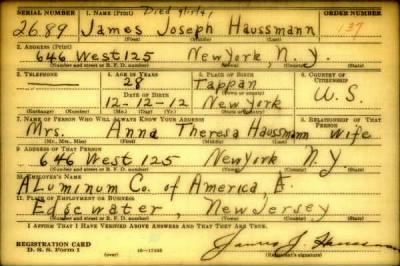 SERIAL NUMBER 1. NAME (Print) Died 9/1/41 ORDER NUMBER
2689 James Joseph Haussmann 137
(First) (Middle) (Last)
2. ADDRESS (Print)
646 West 125 New York, N.Y.
(Number and street or R. F. D. number) (Town) (County) (State)
3. TELEPHONE 4. AGE IN YEARS 5. PLACE OF BIRTH 6. COUNTRY OF CITIZENSHIP
28 Tappan
DATE OF BIRTH (Town or county) U.S.
12-12-12 New York
(Exchange) (Number) (Mo.) (Day) (Yr.) (State or country)
7. NAME OF PERSON WHO WILL ALWAYS KNOW YOUR ADDRESS 8. RELATIONSHIP OF THAT PERSON
Mrs. Anna Theresa Haussmann Wife
(Mr., Mrs., Miss) (First) (Middle) (Last)
9. ADDRESS OF THAT PERSON
646 West 125 New York N.Y
(Number and street or R. F. D. number) (Town) (County) (State)
10. EMPLOYER'S NAME
ALuminum Co. of America,
11. PLACE OF EMPLOYMENT OR BUSINESS
Edgewater, New Jersey
(Number and street or R. F. D. number) (Town) (County) (State)
I AFFIRM THAT I HAVE VERIFIED ABOVE ANSWERS AND THAT THEY ARE TRUE.
REGISTRATION CARD
D. S. S. Form 1 (over) 16—17105 James J. Haussmann